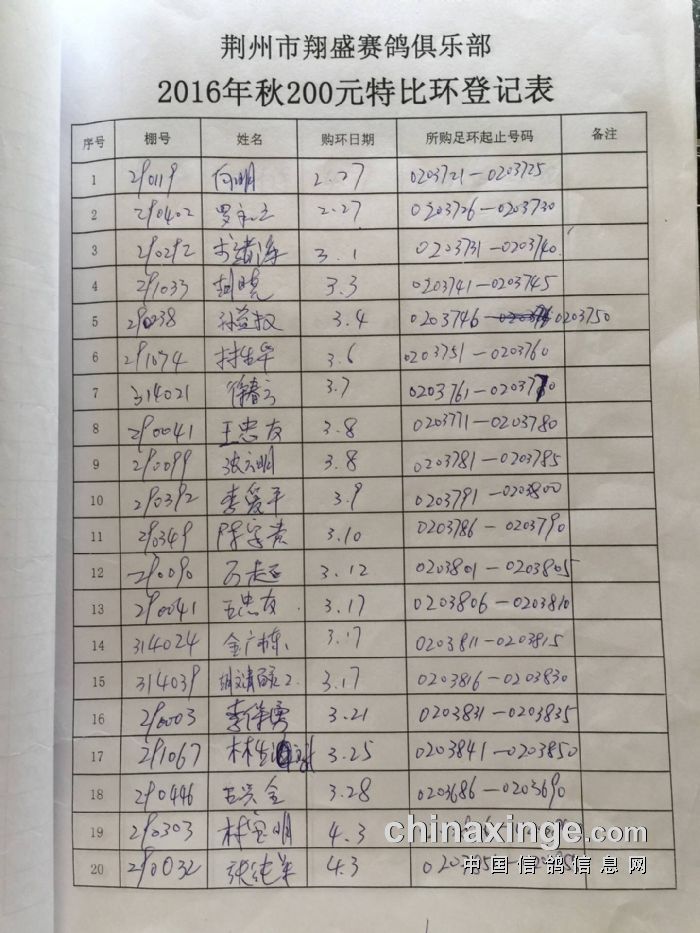 荆州市翔盛赛鸽俱乐部
2016年秋200元特比环登记表
序号 棚号 姓名 购环日期 所购足环起止号码 备注
1 290119 向明 2.27 0203721-0203725
2 290402 2.27 0203726-0203730
3 290292 3.1 0203731-0203740
4 291033 胡晓 3.3 0203741-0203745
5 290038 孙益权 3.4 0203746-0203750
6 291074 3.6 0203751-0203760
7 314021 徐春云 3.7 0203761-0203770
8 290041 王忠友 3.8 0203771-0203780
9 290099 沈云明 3.8 0203781-0203785
10 290392 李爱平 3.9 0203791-0203800
11 290349 3.10 0203786-0203790
12 290090 3.12 0203801-0203805
13 290041 王忠友 3.17 0203806-0203810
14 314024 金广栋 3.17 0203811-0203815
15 314039 3.17 0203816-0203830
16 290003 3.21 0203831-0203835
17 291067 3.25 0203841-0203850
18 290446 3.28 0203686-0203690
19 290303 林宝明 4.3
20 290032 张纯军 4.3
chinaxinge.com
中国信鸽信息网